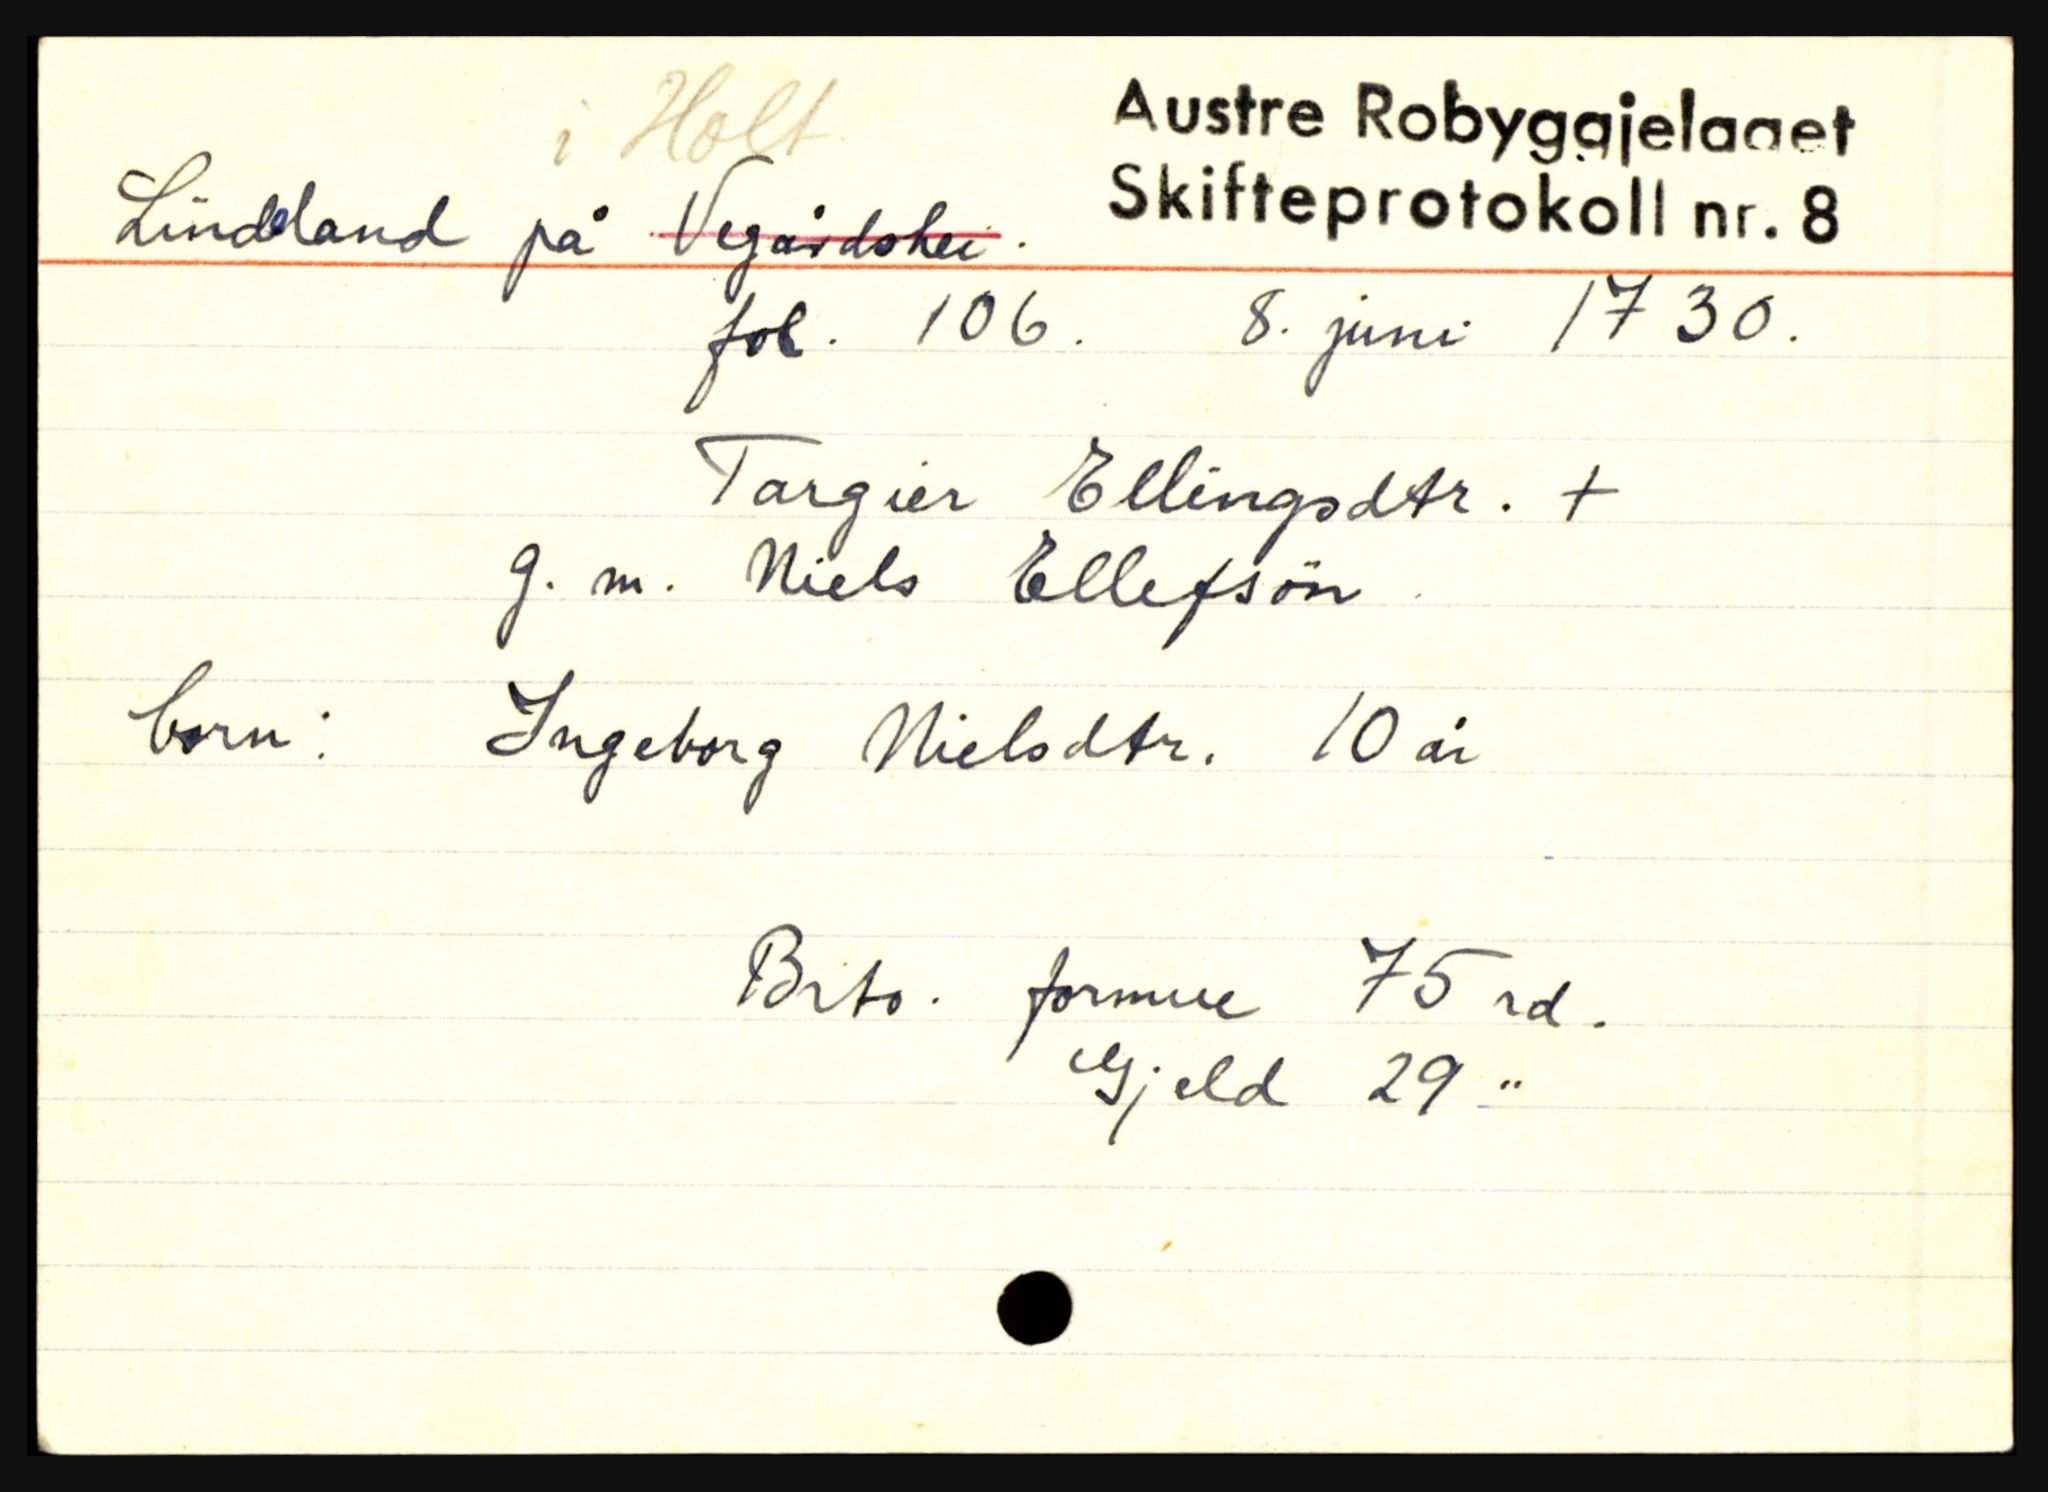 i Holt
Austre Robyggjelaget
Skifteprotokoll nr. 8
Lindeland på Vegårdshei.
fol. 106. 8. juni 1730.
Targier Ellingsdtr. +
g. m. Niels Ellefsön
born: Ingeborg Nielsdtr. 10 år
Brto. formue 75 rd.
Gjeld 29 "